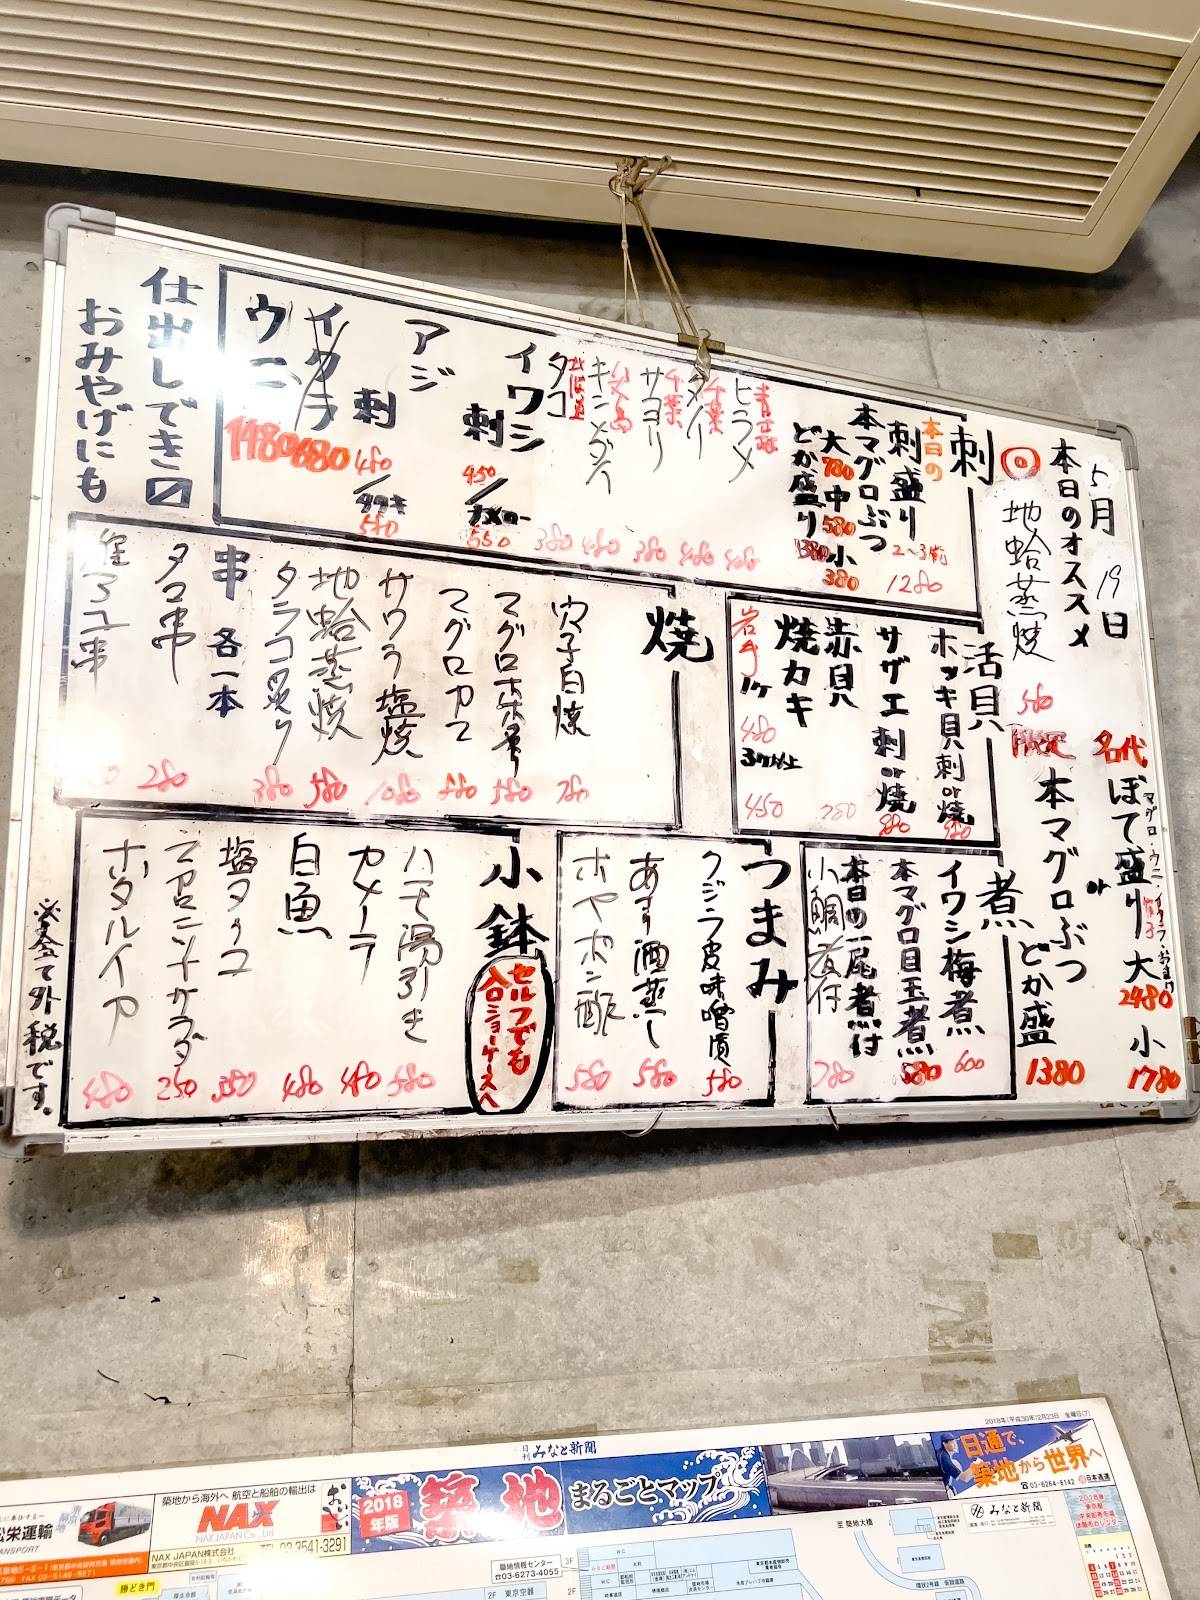 5月19日
本日のオススメ
地蛤蒸焼
580
名代
ぽて盛り
マグロ・ウニ・イクラ・おまけ
大
2480
小
1780
or
限定
本マグロぶつ
どか盛
1380
刺
本日の
刺盛り
2〜3前
1280
本マグロぶつ
大780中580小380
どか盛り
1380
青森
ヒラメ
480
千葉
480
千葉
サヨリ
380
八丈島
キンメダイ
480
北海道
タコ
380
イワシ
刺
450
/
ナメロー
550
アジ
刺
480
/
タタキ
580
イクラ
680
ウニ
1480
仕出しでき〼
おみやげにも
活貝
ホッキ貝刺or焼
サザエ刺or焼
880
赤貝
780
焼カキ
岩手
1ケ
480
3ケ以上
450
焼
穴子白焼
780
580
マグロカマ
サワラ塩焼
1080
地蛤蒸焼
580
タラコ炙り
380
串
各一本
タコ串
280
煮
イワシ梅煮
600
本マグロ目玉煮
880
本日の一尾煮付
小鯛煮付
780
つまみ
クジラ皮味噌漬
580
あさり酒蒸し
580
ホヤポン酢
580
小鉢
セルフでも
入口ショーケースへ
ハモ湯引き
580
480
白魚
480
250
ホタルイカ
480
※全て外税です。
2018年(平成30年)2月23日 金曜日(7)
日刊 みなと新聞
2018年版
築地
まるごとマップ
日通で、
築地から世界へ
☎03-6264-8142
日本通運
みなと新聞
築地から海外へ 航空と船舶の輸出は
NAX
NAX JAPAN Co., Ltd
NAX JAPAN株式会社
TEL 03 3541-3291
栄運輸
勝どき門
築地情報センター
☎03-6273-4055
至 築地大橋
3F
2F
東京空器
2F
環状2号線 仮設道路